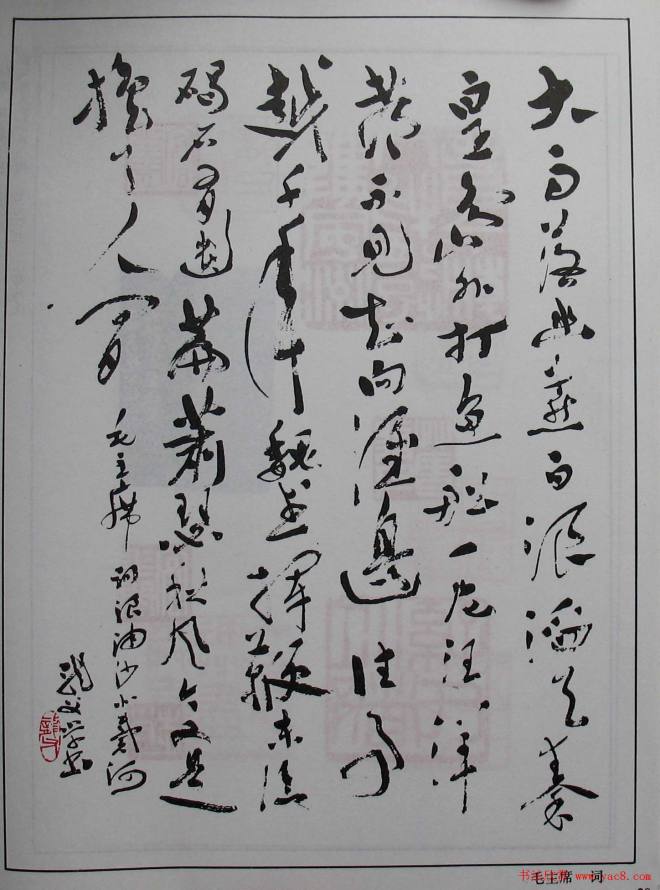 大雨落幽燕白浪滔天秦
皇岛外打鱼船一片汪洋
都不见知向谁边往事
越千年魏武挥鞭东临
碣石有遗篇萧瑟秋风今又是
换了人间
毛主席词浪淘沙北戴河
毛主席 词
书法欣赏 www.yac8.com